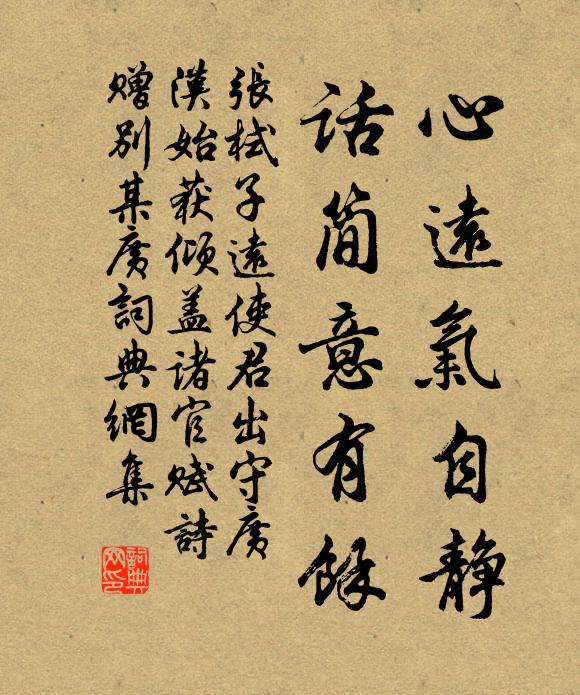 心遠氣自静
話簡意有餘
張栻子遠使君出守廣
漢始获傾盖諸官賦詩
贈別某廣詞典網集
詞典
网印